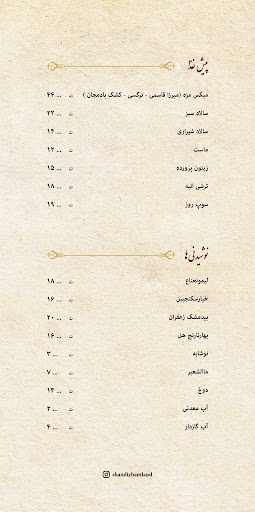 پیش غذا
میکس مزه (میرزا قاسمی - نرگسی - کشک بادمجان) ۴۴ ... ت
سالاد سبز ۲۲ ... ت
سالاد شیرازی ۱۴ ... ت
ماست ۱۲ ... ت
زیتون پرورده ۱۵ ... ت
ترشی انبه ۱۸ ... ت
سوپ روز ۱۹ ... ت
نوشیدنی ها
لیمونعناع ۱۸ ... ت
خیارسکنجبین ۱۶ ... ت
بیدمشک زعفران ۲۰ ... ت
بهارنارنج هل ۱۶ ... ت
نوشابه ۳ ... ت
ماالشعیر ۷ ... ت
دوغ ۱۴ ... ت
آب معدنی ۲ ... ت
آب گازدار ۴ ... ت